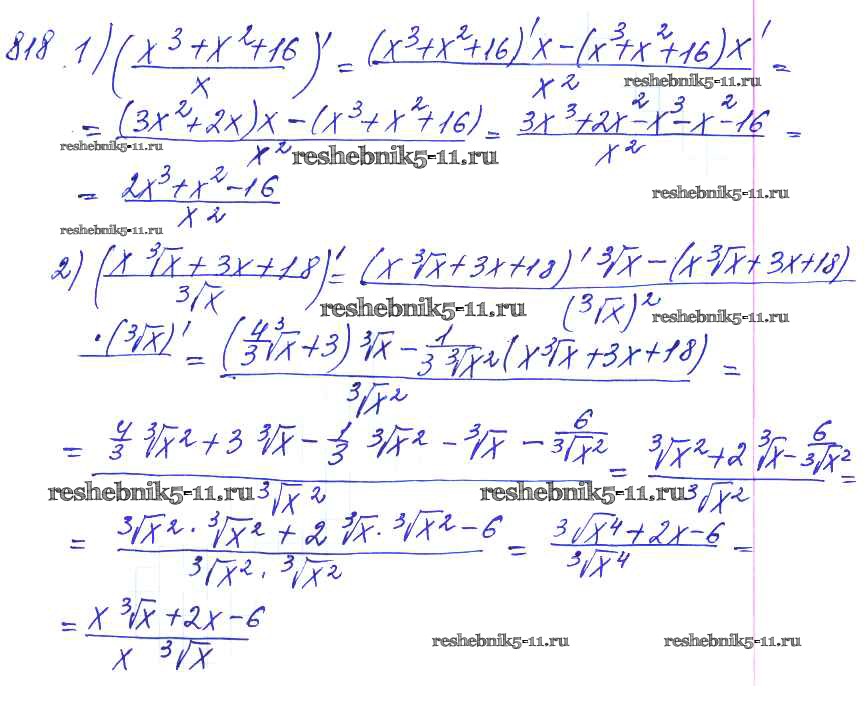 818 1) ( (x³+x²+16)/x )' = ((x³+x²+16)'x − (x³+x²+16)x')/x² =
reshebnik5-11.ru
= ((3x²+2x)x − (x³+x²+16))/x² = (3x³+2x²−x³−x²−16)/x² =
reshebnik5-11.ru reshebnik5-11.ru
= (2x³+x²−16)/x²
reshebnik5-11.ru
reshebnik5-11.ru
2) ( (x ∛x + 3x + 18)/∛x )' = ((x ∛x + 3x + 18)' ∛x − (x ∛x + 3x + 18)/(∛x)²
reshebnik5-11.ru reshebnik5-11.ru
· (∛x)' = ((4/3 ∛x + 3) ∛x − 1/(3 ∛x²) (x ∛x + 3x + 18))/∛x² =
= (4/3 ∛x² + 3 ∛x − 1/3 ∛x² − ∛x − 6/∛x²)/∛x² = (∛x² + 2 ∛x − 6/∛x²)/∛x² =
reshebnik5-11.ru reshebnik5-11.ru
= (∛x² · ∛x² + 2 ∛x · ∛x² − 6)/(∛x² · ∛x²) = (∛x⁴ + 2x − 6)/∛x⁴ =
= (x ∛x + 2x − 6)/(x ∛x)
reshebnik5-11.ru reshebnik5-11.ru